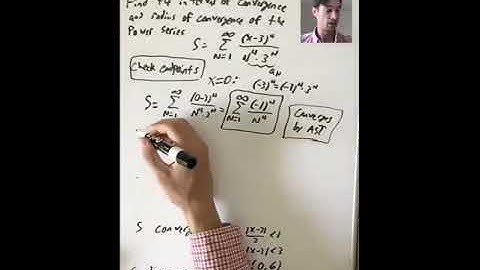 Find the interval of convergence
and radius of convergence of the
Power Series
S = ∑_{N=1}^{∞} (x-3)^N / N^4·3^N
a_N
Check endpoints
x=0: (-3)^N = (-1)^N·3^N
S = ∑_{N=1}^{∞} (0-3)^N / N^4·3^N = ∑_{N=1}^{∞} (-1)^N / N^4
Converges
by AST
S conver |x-3|/3 < 1
|x-3| < 3
(0,6)